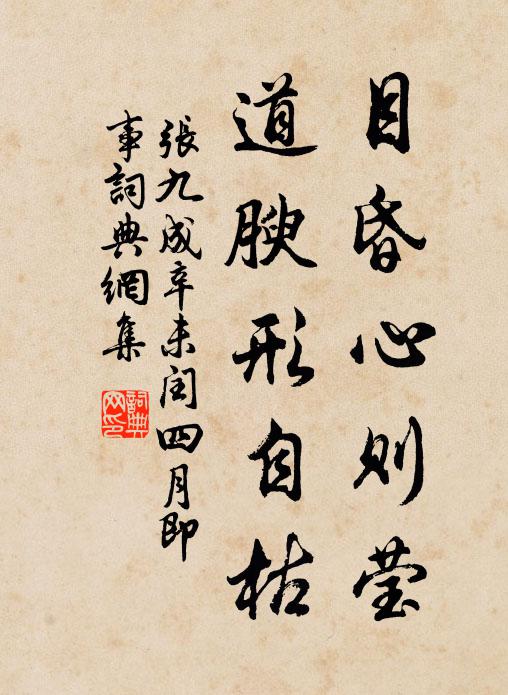 目昏心则莹
道腴形自枯
張九成辛未闰四月即
事詞典網集
詞典
网印